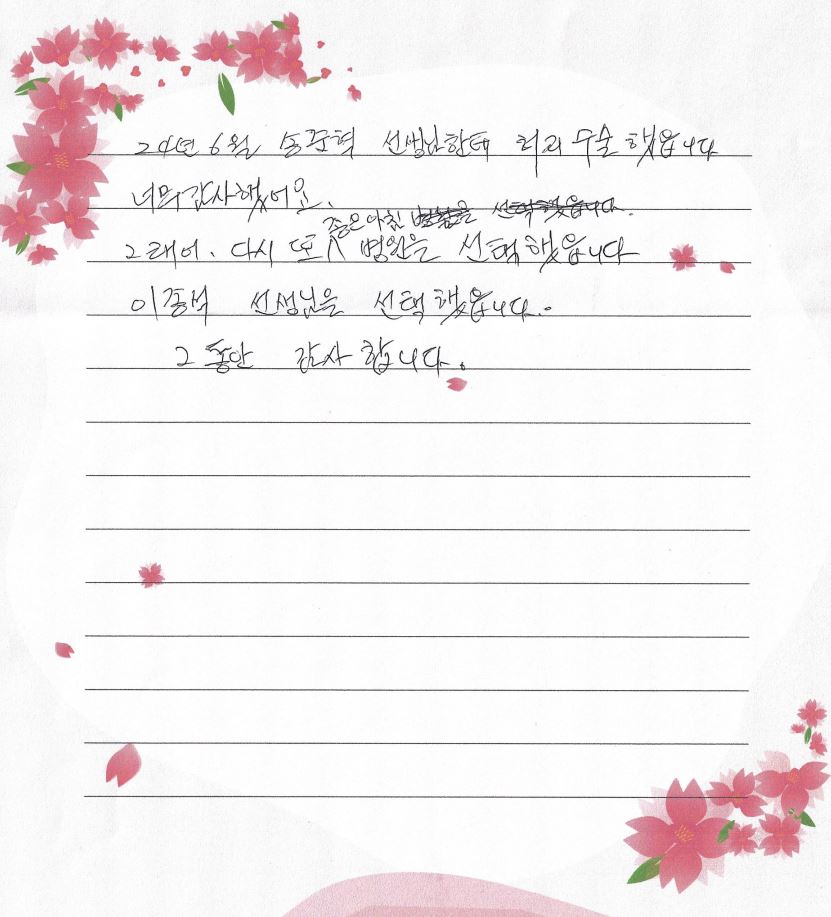 24년 6월 송준혁 선생님한테 허리 수술 했읍니다
너무 감사했어요.
좋은아침 병원을 선택했읍니다.
그래서. 다시 또 병원을 선택했읍니다
이종석 선생님을 선택했읍니다..
그동안 감사합니다.